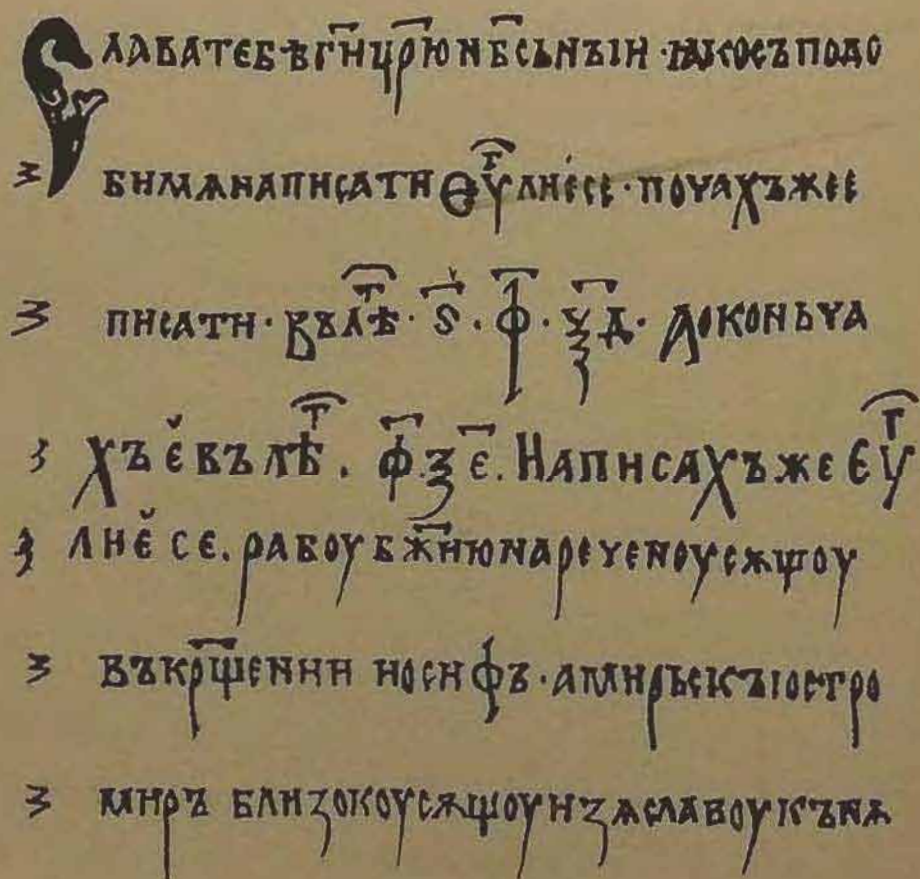 СЛАВАТЕБѢГ҃ИЦР҃ЮНБ҃СЬНЪІИ · ꙖКОСЪПОДО
БИМѦНАПИСАТИѲУⷢ҇ЛИЕ́СЕ · ПОЧАХЪЖЕЕ
ПИСАТИ · ВЪЛѢⷮ҇ · Ѕ҃ · Ф҃ · Ѯ҃Д · ДОКОНЬЧА
ХЪӖВЪЛѢⷮ҇ . Ф҃.З Е҃. НАПИСАХЪЖЕЕУⷢ҇
ЛИӖСЕ. РАБОУБЖ҃ИЮНАРЕЧЕНОУСѪЩОУ
ВЪКР҃ЩЕНИИ ИОСИФЪ · АМИРЬСКЪІОСТРО
МИРЪ БЛИЗОКОУСѪЩОУИЗѦСЛАВОУКЪНѦ